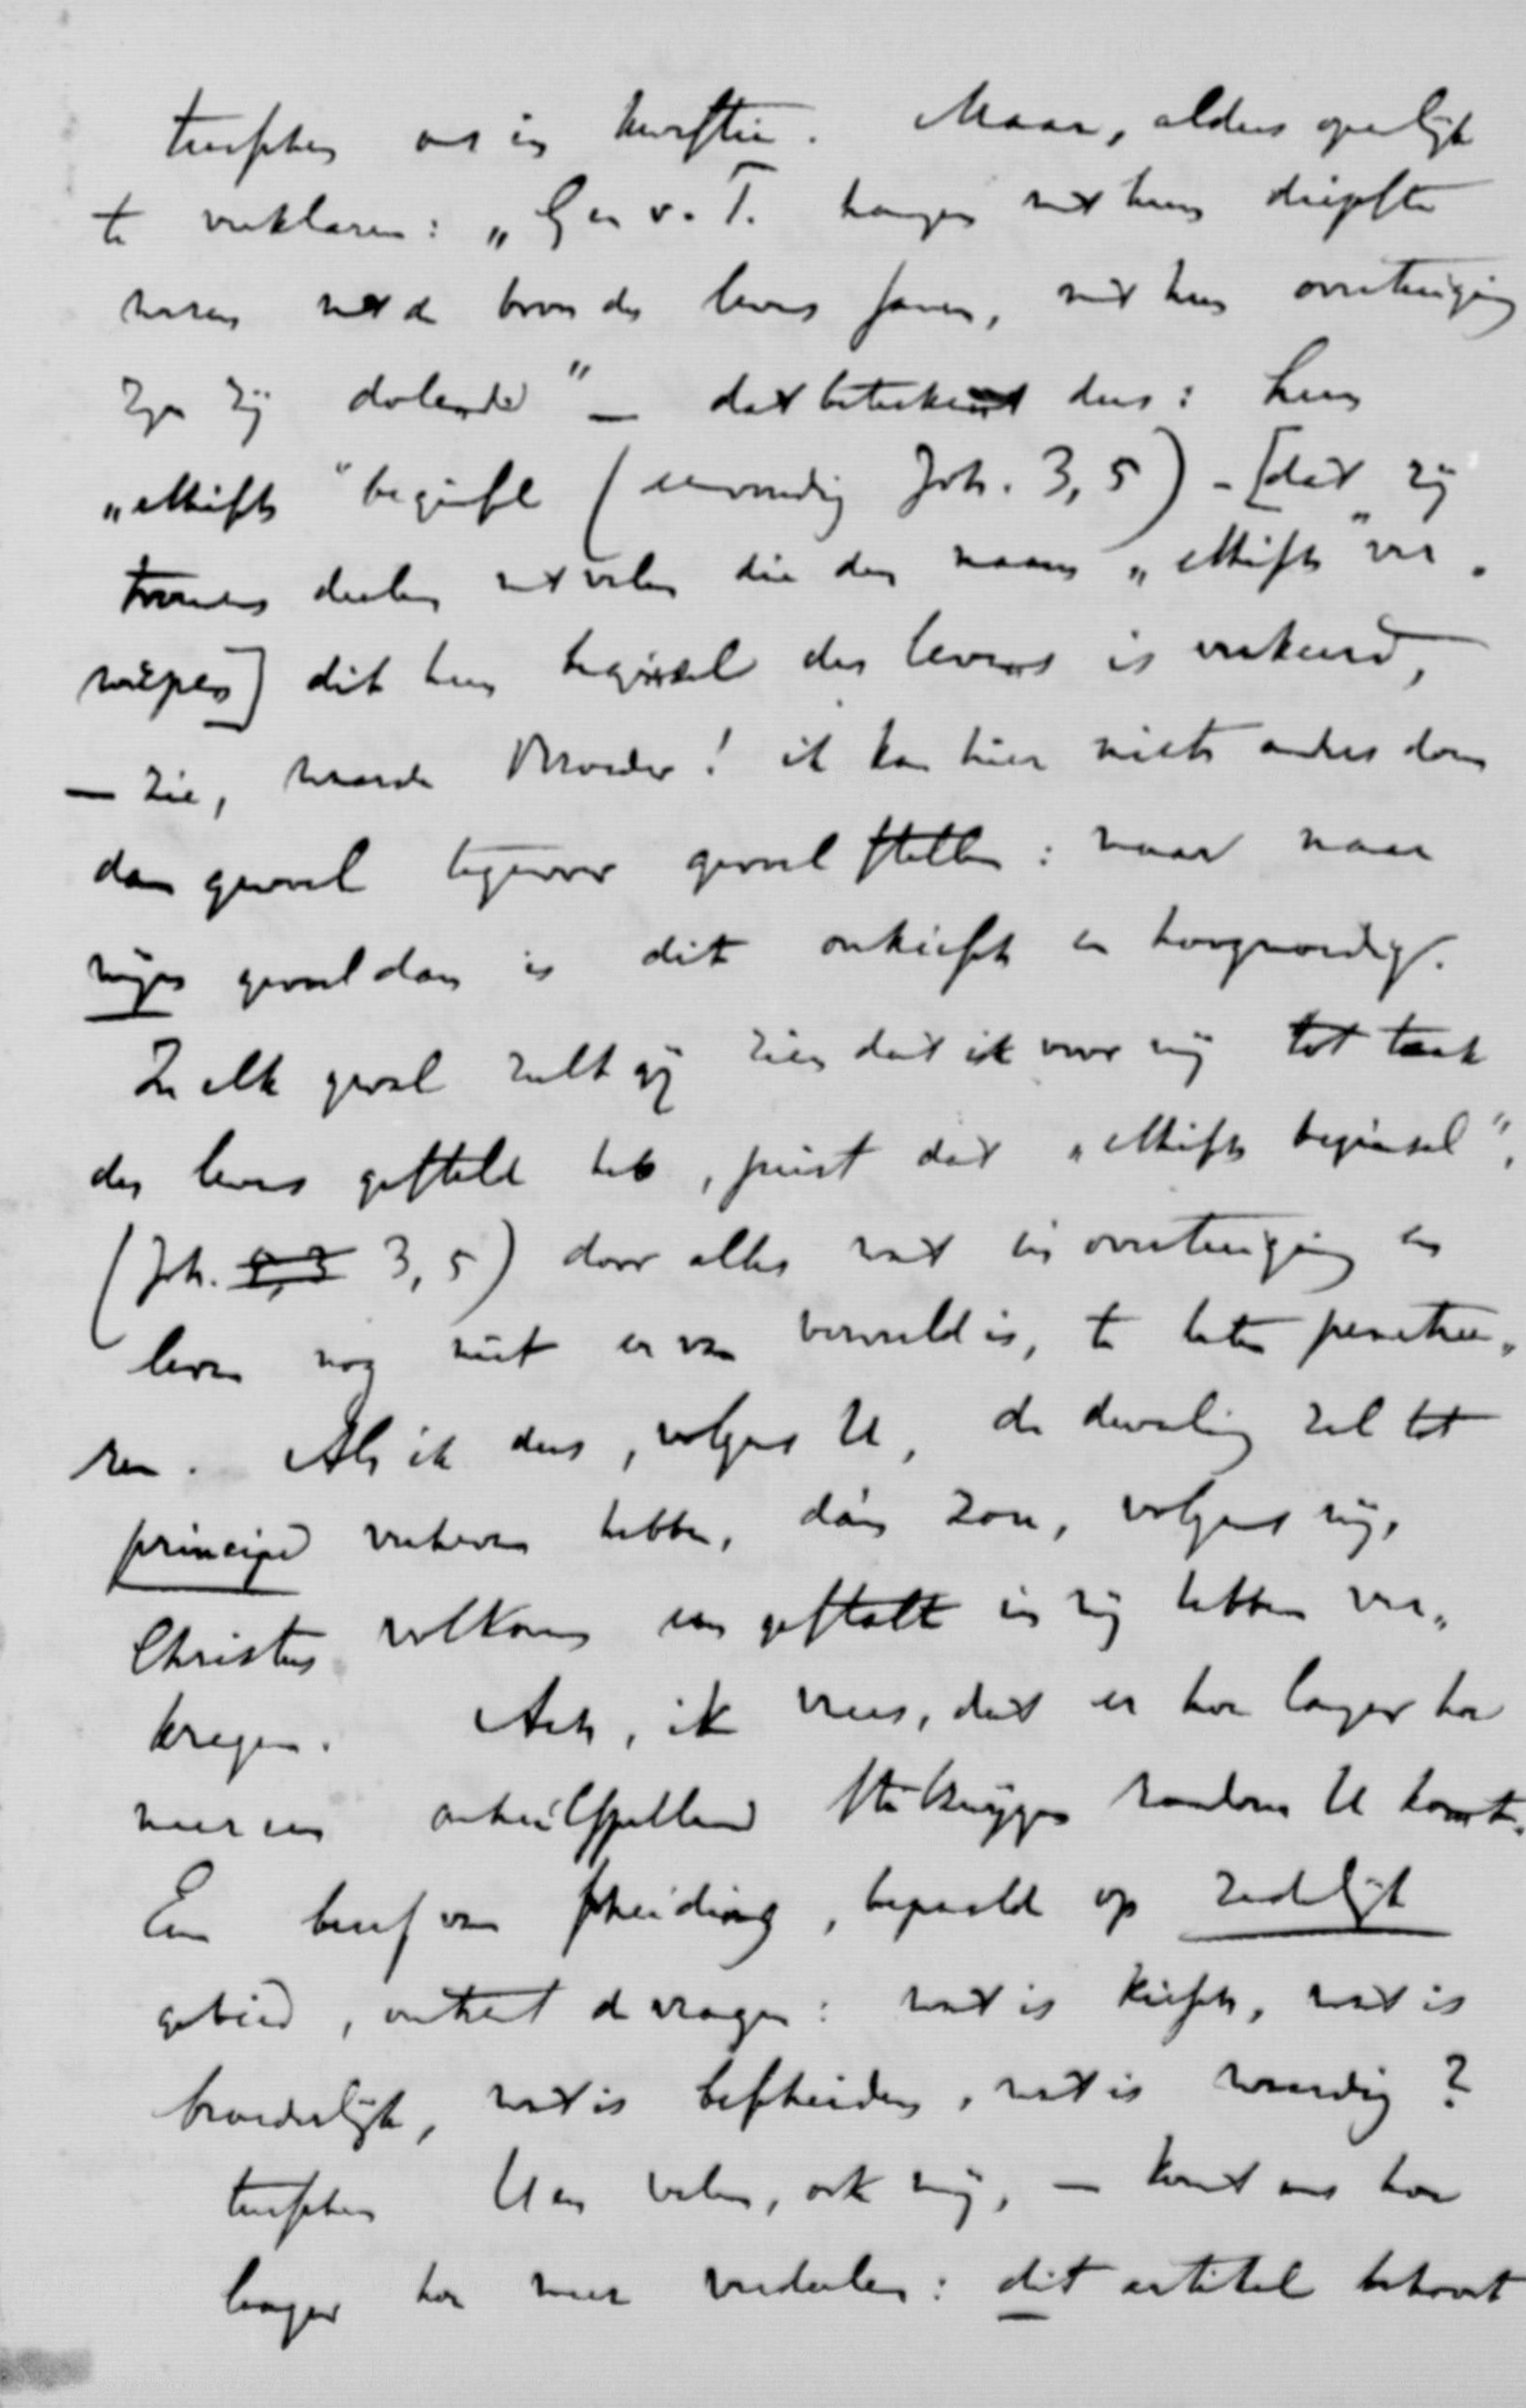 tusschen ons in kwestie. Maar, aldus openlijk
te verklaren: „G en v. T. hangen met hun diepste
wezen met de bron des levens samen, met hun overtuiging
zijn zij dolende" — dat beteekent dus: hun
„ethisch" beginsel (eenvoudig Joh. 3,5) - [dat zij
trouwens deelen met velen die den naam „ethisch" ver„
werpen] dit hun beginsel des levens is erkend,
— zie, waarde Broeder! ik kan hier niets anders dan
dan gevoel tegenover gevoel stellen: maar naar
mijn gevoel dan is dit onkiesch en hoogmoedig.
In elk geval zult gij zien dat ik voor mij tot taak
des levens gesteld heb, juist dat „ethisch beginsel",
(Joh. 3,5) door alles wat in overtuiging en
leven nog niet er van vervuld is, te laten penetree„
ren. Als ik dus, volgens U, de dwaling zal tot
principe verheven hebben, dán zou, volgens mij,
Christus volkomen een gestalte in mij hebben ver„
kregen. Ach, ik vrees, dat er hoe langer hoe
meer een onheilspellend stilzwijgen rondom U komt.
Een besef van scheiding, bepaald op zedelijk
gebied, omtrent de vragen: wat is kiesch, wat is
broederlijk, wat is bescheiden, wat is waardig?
tusschen U en velen, ook mij, — komt ons hoe
langer hoe meer verdeelen: dit artikel behoort